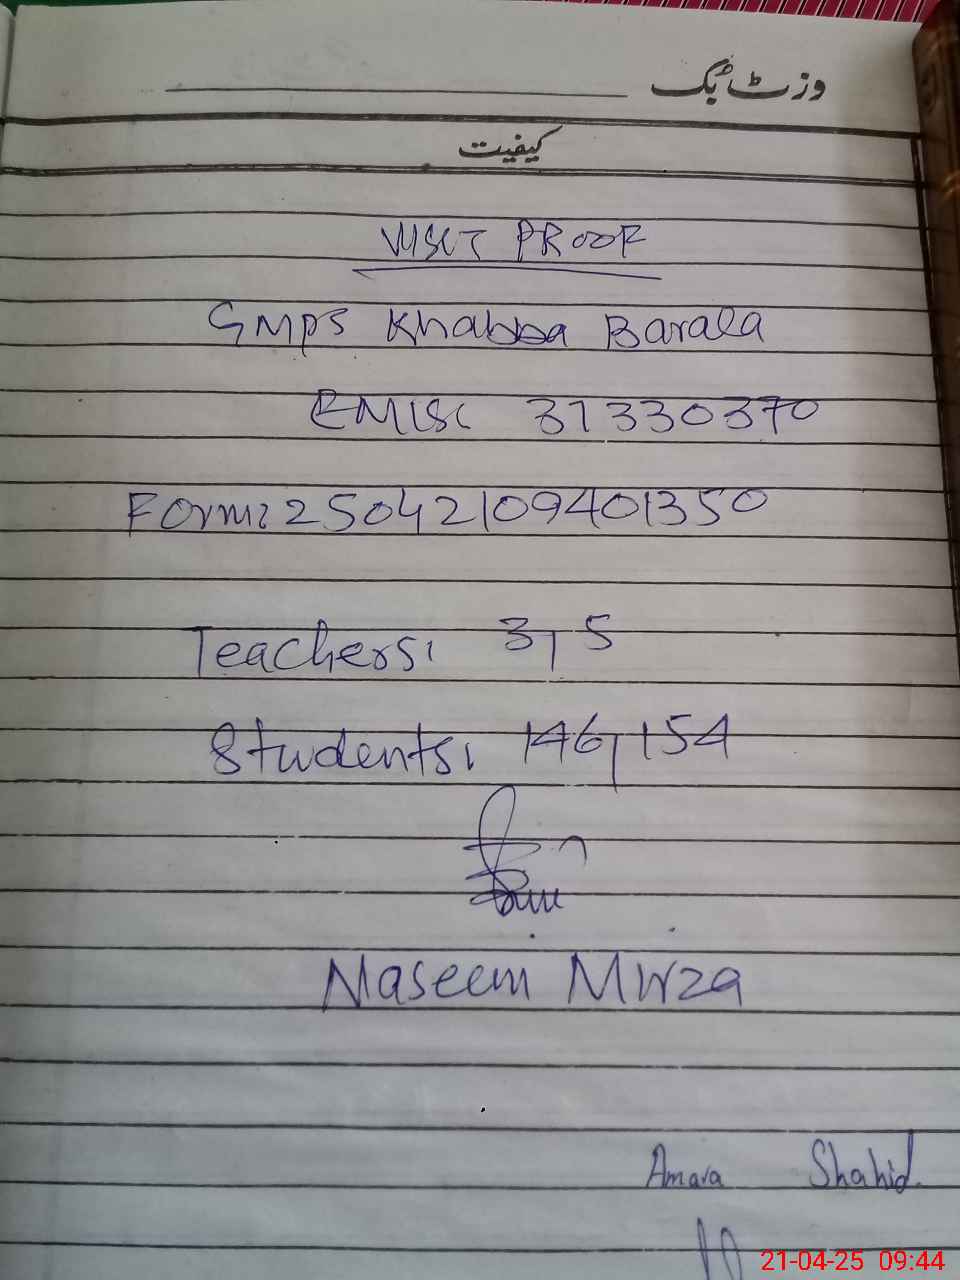 وزٹ بُک
کیفیت
VISIT PROOF
GMPS Khabba Barala
EMIS: 37330370
Form: 25042109401350
Teachers: 3/5
Students: 146/154
Naseem Mirza
Amara Shahid
21-04-25 09:44